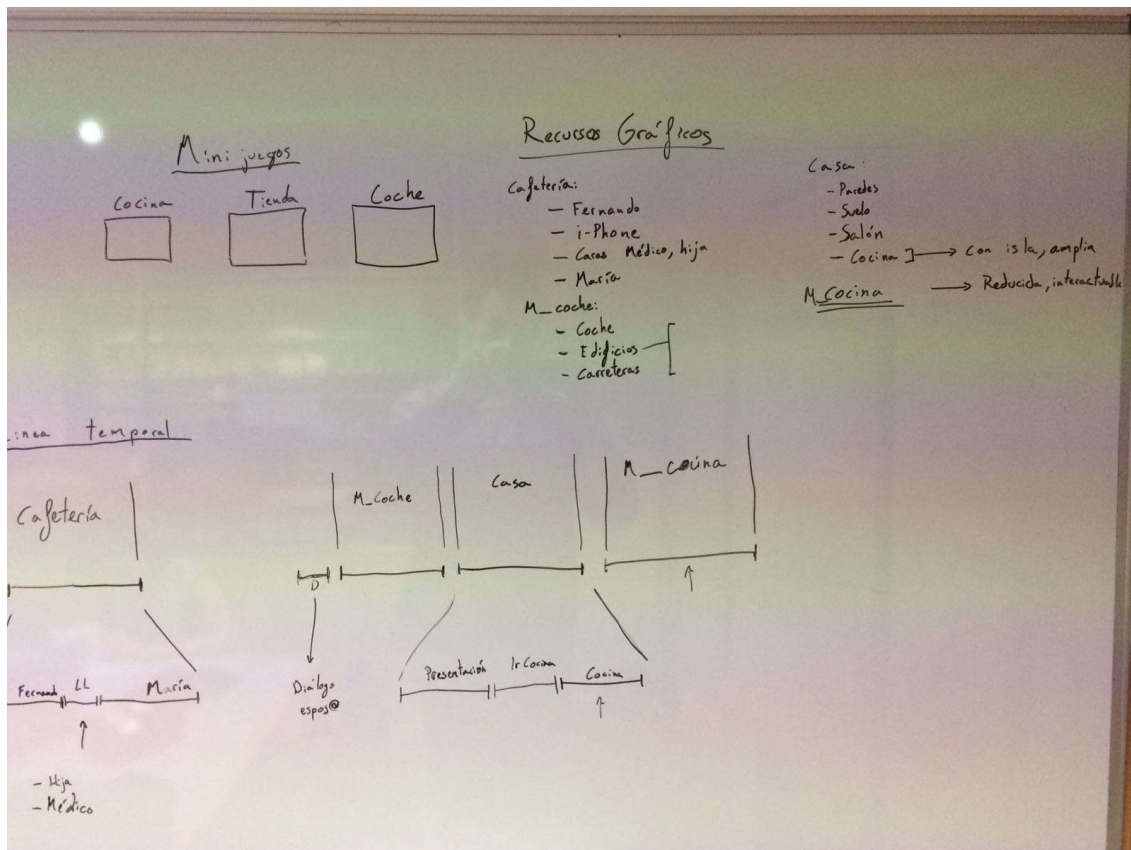 Mini juegos
Cocina Tienda Coche
Recursos Gráficos
Cafetería:
- Fernando
- i-Phone
- Caras Médico, hija
- María
M_coche:
- Coche
- Edificios
- Carreteras
Casa:
- Paredes
- Suelo
- Salón
- Cocina ] → con isla, amplia
M_Cocina → Reducida, interactuable
Linea temporal
Cafetería
M_Coche
Casa
M_Cocina
D
Fernand LL María
- Hija
- Médico
Diálogo
espos@
Presentación Ir Cocina Cocina